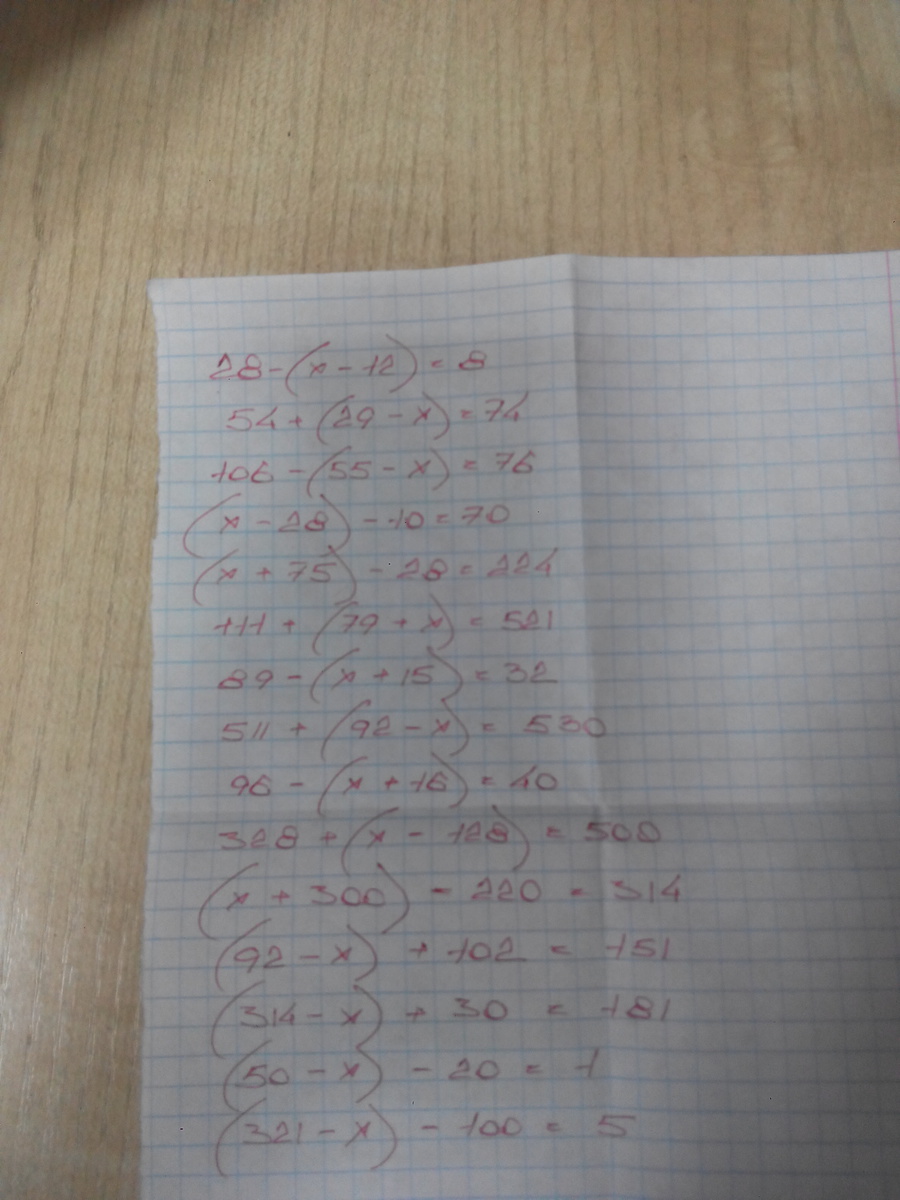 28-(x-12)=8
54+(29-x)=74
106-(55-x)=76
(x-28)-10=70
(x+75)-28=224
111+(79+x)=521
89-(x+15)=32
511+(92-x)=530
96-(x+16)=40
328+(x-128)=500
(x+300)-220=314
(92-x)+102=151
(314-x)+30=181
(50-x)-20=1
(321-x)-100=5